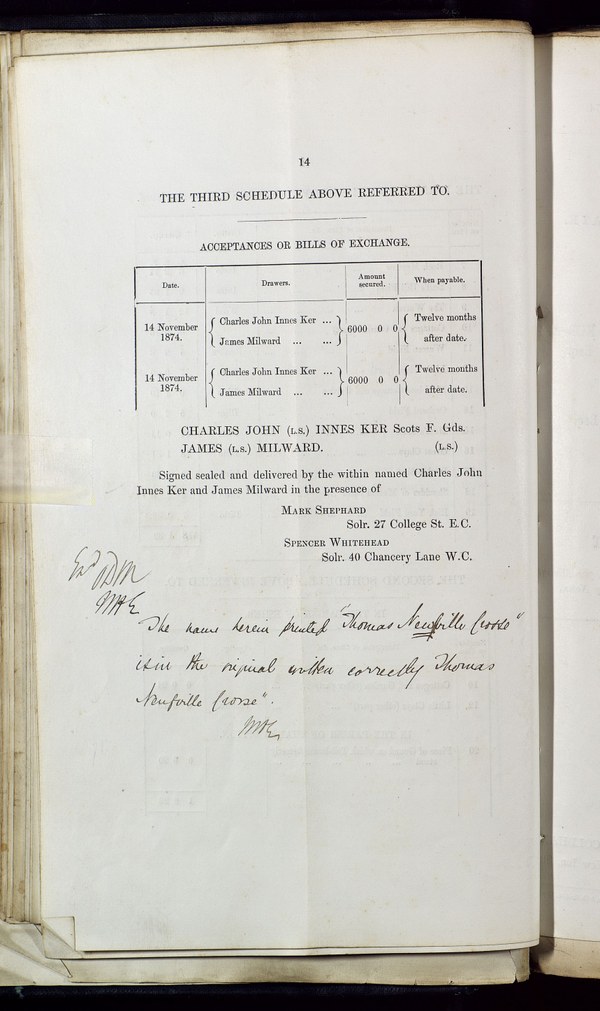 14
THE THIRD SCHEDULE ABOVE REFERRED TO.
ACCEPTANCES OR BILLS OF EXCHANGE.
Date. Drawers. Amount secured. When payable.
14 November 1874. Charles John Innes Ker ... James Milward ... ... 6000 0 0 Twelve months after date.
14 November 1874. Charles John Innes Ker ... James Milward ... ... 6000 0 0 Twelve months after date.
CHARLES JOHN (L.S.) INNES KER Scots F. Gds.
JAMES (L.S.) MILWARD. (L.S.)
Signed sealed and delivered by the within named Charles John
Innes Ker and James Milward in the presence of
MARK SHEPHARD
Solr. 27 College St. E.C.
SPENCER WHITEHEAD
Solr. 40 Chancery Lane W.C.
The name herein printed "Thomas Neufville Crosse"
is in the original written correctly Thomas
Neufville Crosse".